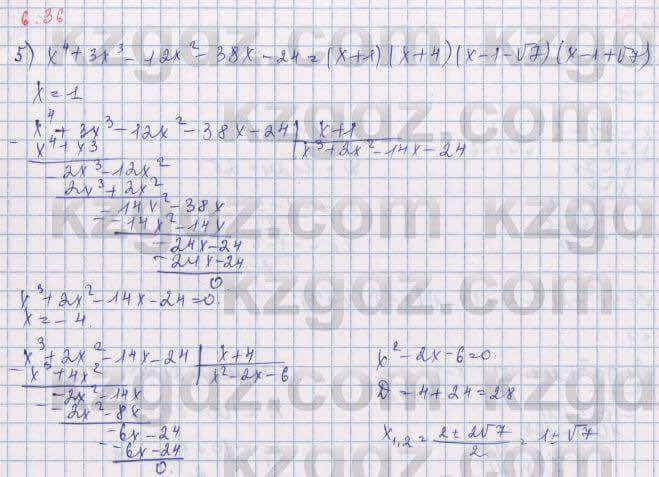 6.36
5) x⁴+3x³-12x²-38x-24=(x+1)(x+4)(x-1-√7)(x-1+√7)
x=1
- x⁴+3x³-12x²-38x-24 | x+1
x⁴+x3 | x³+2x²-14x-24
- 2x³-12x²
2x³+2x²
- -14x²-38x
-14x²-14x
- -24x-24
-24x-24
0
x³+2x²-14x-24=0.
x=-4.
- x³+2x²-14x-24 | x+4
x³+4x² | x²-2x-6.
- -2x²-14x
-2x²-8x
- -6x-24
-6x-24
0.
x²-2x-6=0.
D=4+24=28
x₁,₂=(2±2√7)/2=1±√7
kzgdz.com
kzgdz.com
kzgdz.com
kzgdz.com
kzgdz.com